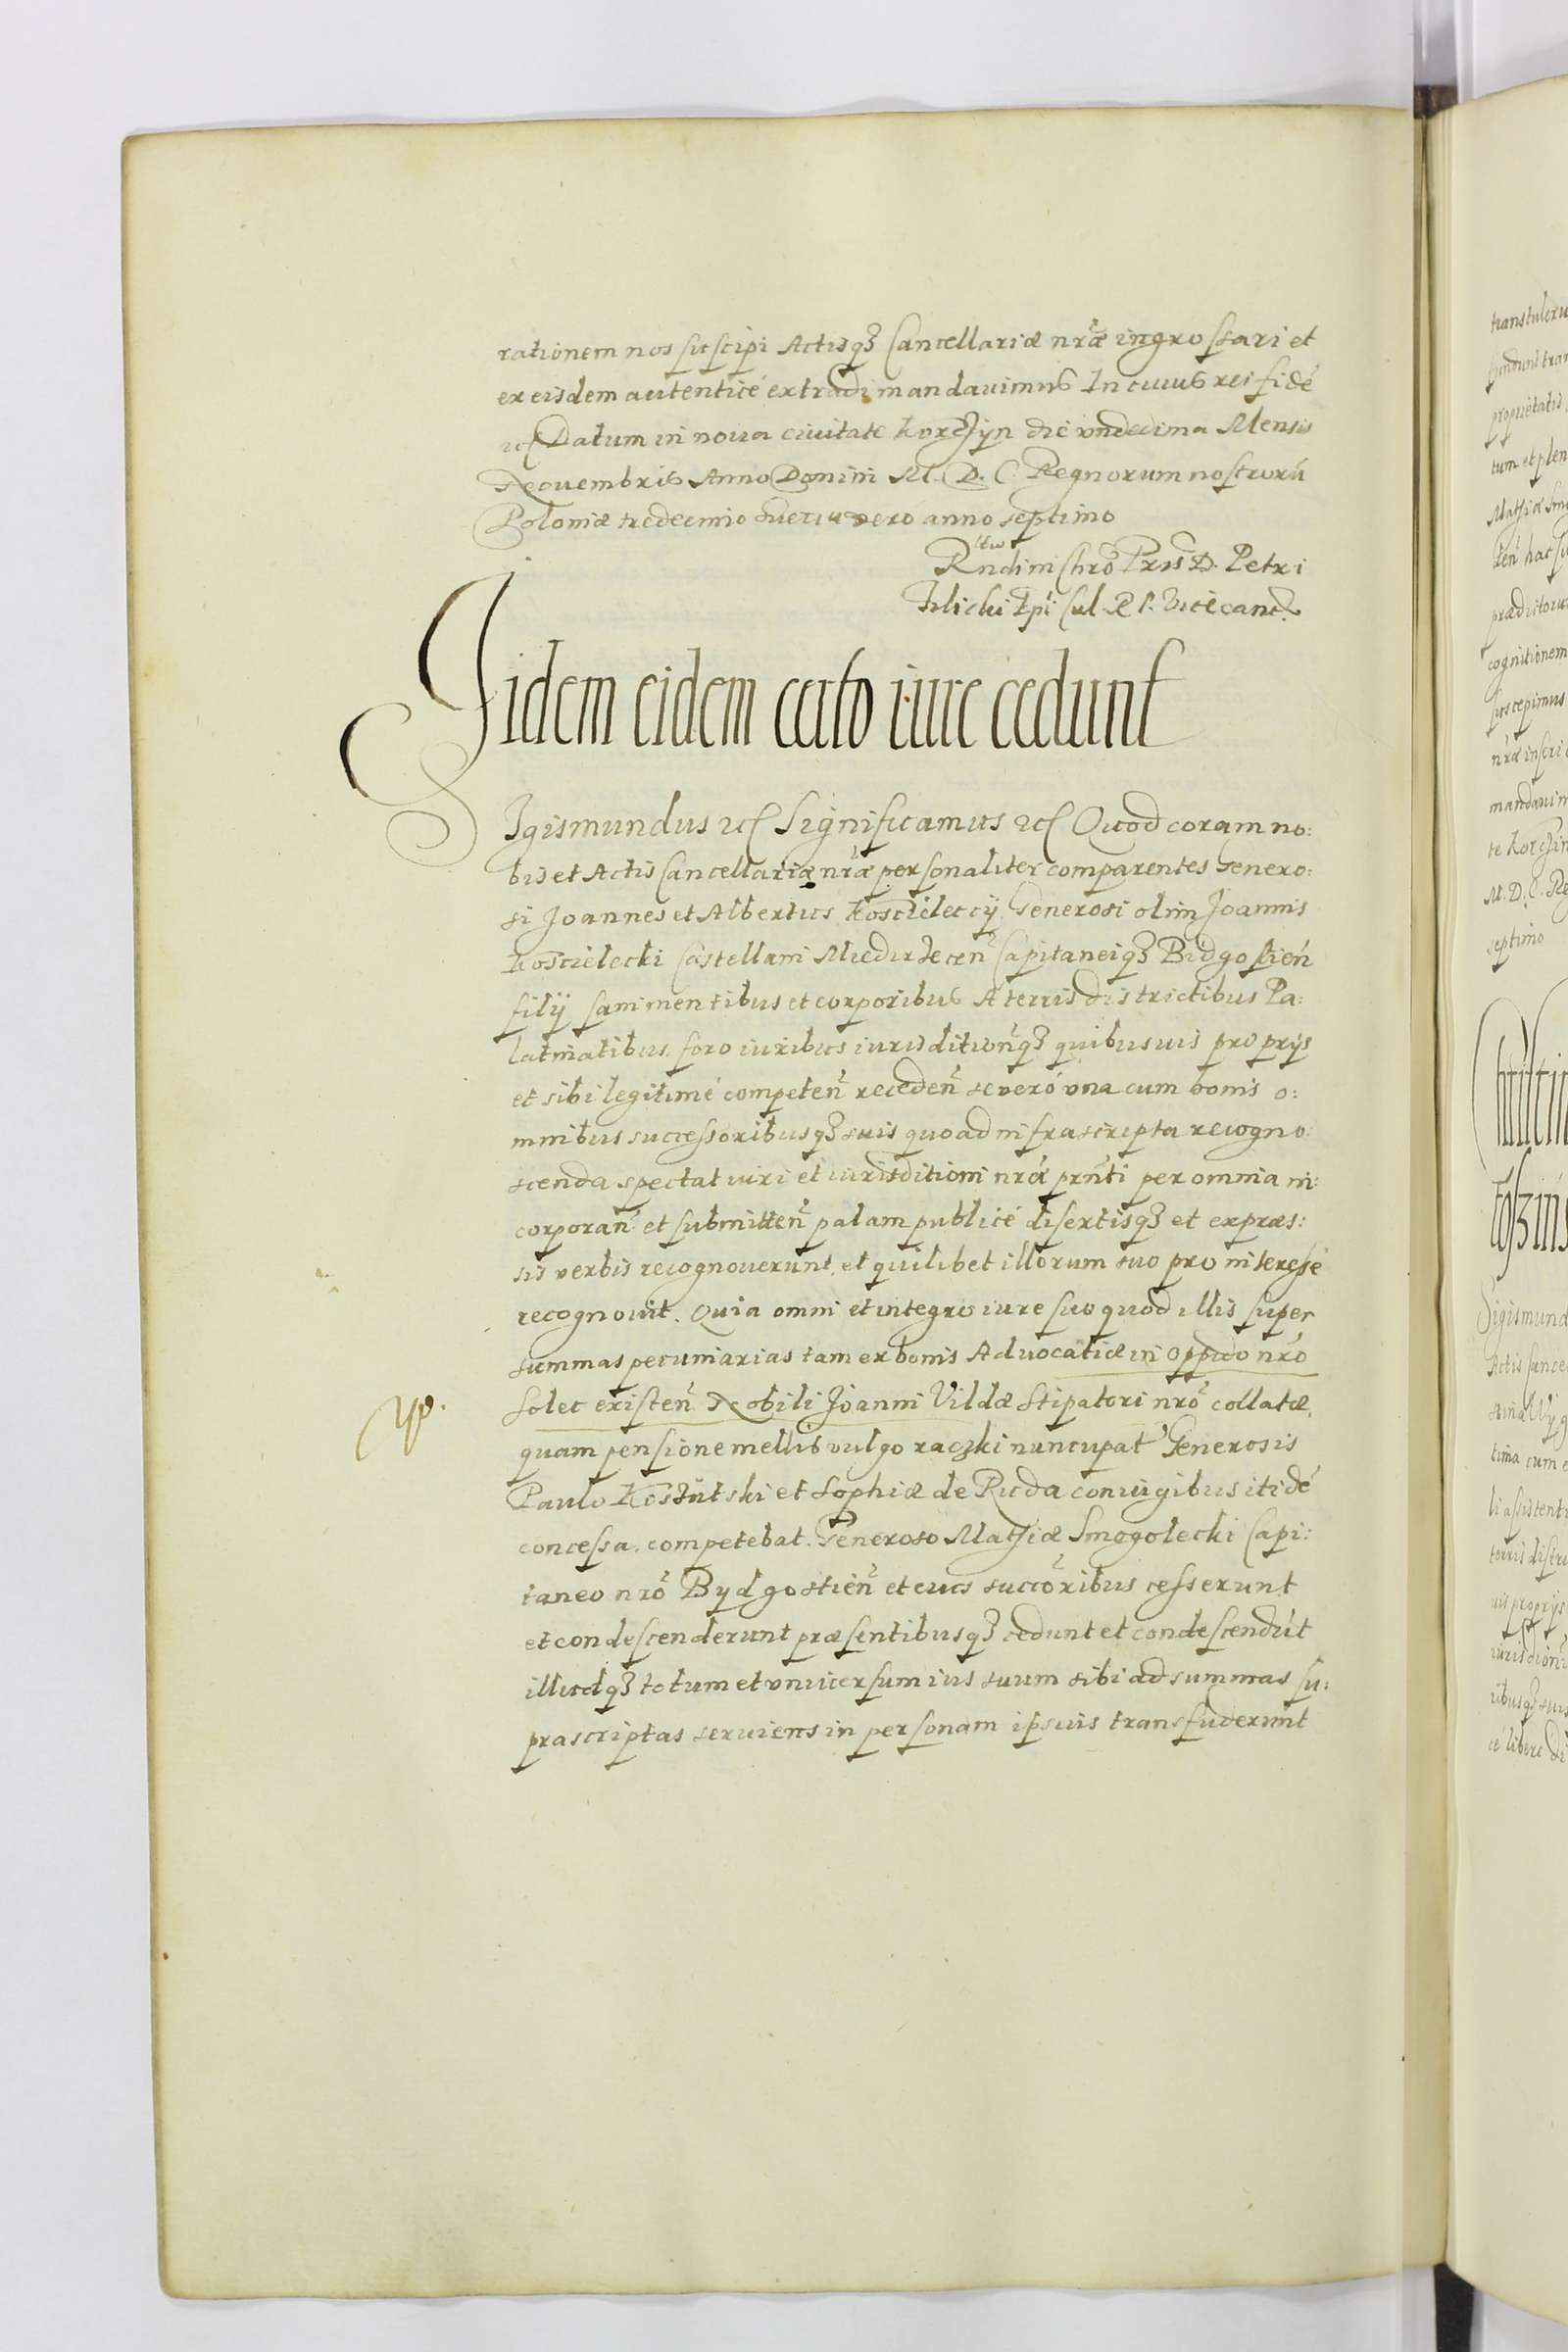 rationem nos suscipi Actisq3 Cancellariæ nr̃æ ingrossari et
ex eisdem autenticé extradi mandauimus In cuius rei fidé
etc Datum in noua ciuitate Korczÿn die vndecima Mensis
Nouembris Anno Domini M. D. C. Regnorum nostrorú
Poloniæ tredecimo Sueciæ vero anno septimo
Rndi in Chrõ Pris D. Petri
Tilicki Epĩ Cul. R P. Vicecanc.
Jidem eidem certo iure cedunt
Sigismundus etc Significamus etc Quod coram no:
bis et Actis Cancellariæ nr̃æ personaliter comparentes Genero:
si Joannes et Albertus Koscieleccÿ Generosi olim Joannis
Koscielecki Castellani Miedirzecen̄ Capitaneiq3 Bidgostień
filij sani mentibus et corporibus A terris districtibus Pa:
latinatibus foro iuribus iurisditionq̃3 quibusuis proprijs
et sibi legitimé competen̄ receden̄ se veró vna cum bonis o:
mnibus successoribusq3 suis quo ad infrascripta recogno:
scenda spectat iuri et iurisditioni nr̃æ prńti per omnia in:
corporan̄ et submitten̄ palam publicé disertisq3 et expræs:
sis verbis recognouerunt, et quilibet illorum suo pro interesse
recognouit. Quia omni et integro iure suo quod illis super
summas pecuniarias tam ex bonis Aduocatiæ in oppido nr̃o
Solec existen̄ Nobili Joanni Vildæ Stipatori nrõ collatæ,
quam pensione mellis vulgo raczki nuncupat Generosis
Paulo et Sophiæ de Ruda coniugibus itidé
concessa. competebat. Generoso Mathiæ Smogolecki Capi:
taneo nrõ Bydgostien̄ et eius succõribus cesserunt
et condescenderunt præsentibusq3 cedunt et condescendút
illudq3 totum et vniuersum ius suum sibi ad summas su:
prascriptas seruiens in personam ipsius transfuderunt